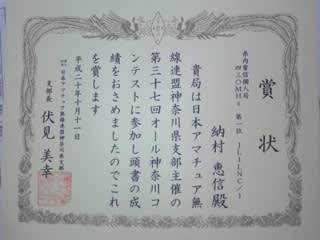 賞状
県内電信個人局
430MHz 第一位 JL1LNC/1
納村恵信殿
貴局は日本アマチュア無
線連盟神奈川県支部主催の
第三十七回オール神奈川コ
ンテストに参加し頭書の成
績をおさめましたのでこれ
を賞します
平成二十年十月十一日
日本アマチュア無線連盟神奈川県支部
支部長 伏見美幸